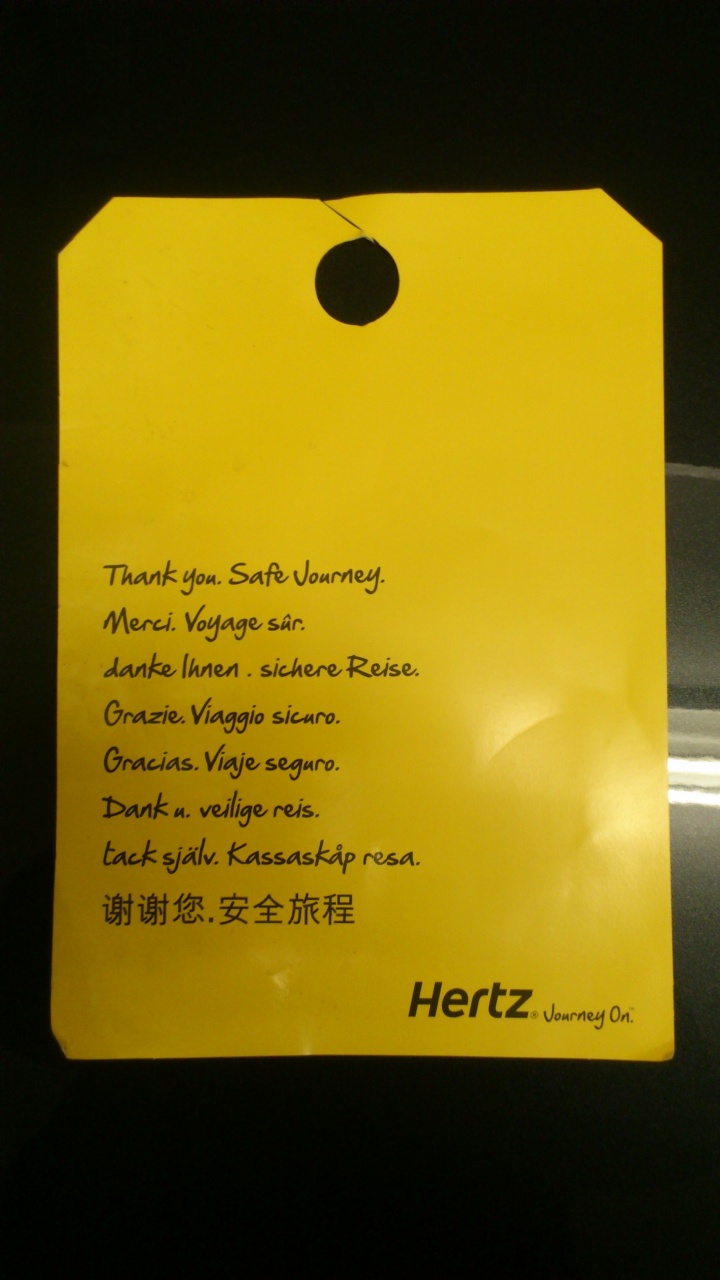 Thank you. Safe Journey.
Merci. Voyage sûr.
danke Ihnen . sichere Reise.
Grazie. Viaggio sicuro.
Gracias. Viaje seguro.
Dank u. veilige reis.
tack själv. Kassaskåp resa.
谢谢您.安全旅程
Hertz® Journey On.™